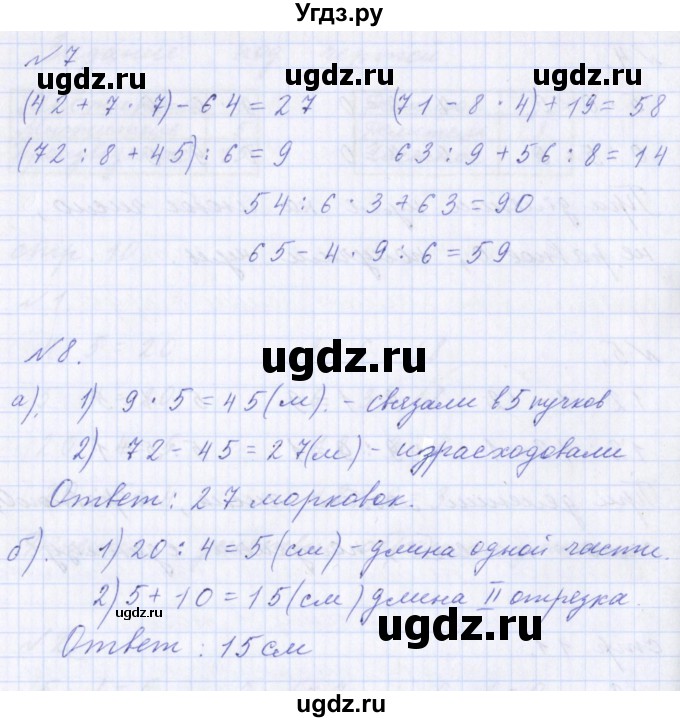 Угдз.ру
№7
ugdz.ru ugdz.ru
(42 + 7 · 7) - 64 = 27 (71 - 8 · 4) + 19 = 58
(72 : 8 + 45) : 6 = 9 63 : 9 + 56 : 8 = 14
54 : 6 · 3 + 63 = 90
65 - 4 · 9 : 6 = 59
№8.
ugdz.ru
а). 1) 9 · 5 = 45 (м). - связали в 5 пучков
2) 72 - 45 = 27 (м) - израсходовали
Ответ: 27 морковок.
б). 1) 20 : 4 = 5 (см) - длина одной части.
2) 5 + 10 = 15 (см) длина II отрезка.
ugdz.ru ugdz.ru
Ответ: 15 см
ugdz.ru